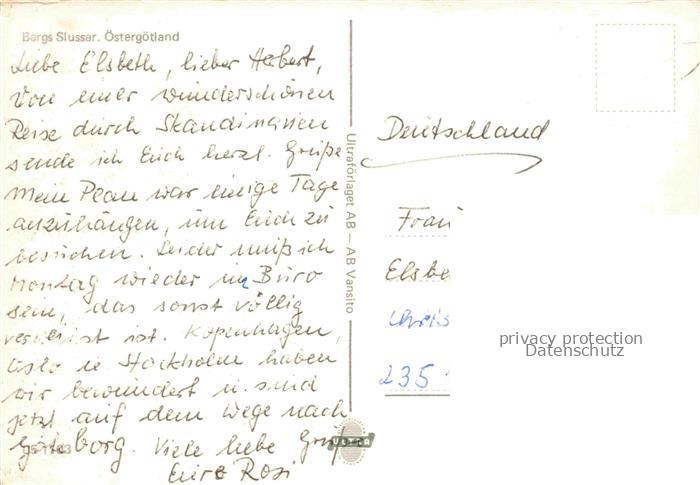 Bergs Slussar. Östergötland
Liebe Elsbeth, lieber Herbert,
Von einer wunderschönen
Reise durch Skandinavien
sende ich Euch herzl. Grüße
Mein Plan war einige Tage
anzuhängen, um Euch zu
besuchen. Leider muß ich
Montag wieder im Büro
sein, das sonst völlig
verwaist ist. Kopenhagen,
Oslo u. Stockholm haben
wir bewundert u. sind
jetzt auf dem Wege nach
Göteborg. Viele liebe Grüße
Eure Rosi
Ultraförlaget AB — AB Vansito
ULTRA
Deutschland
Frau
Elsbe
Chris
235
privacy protection
Datenschutz